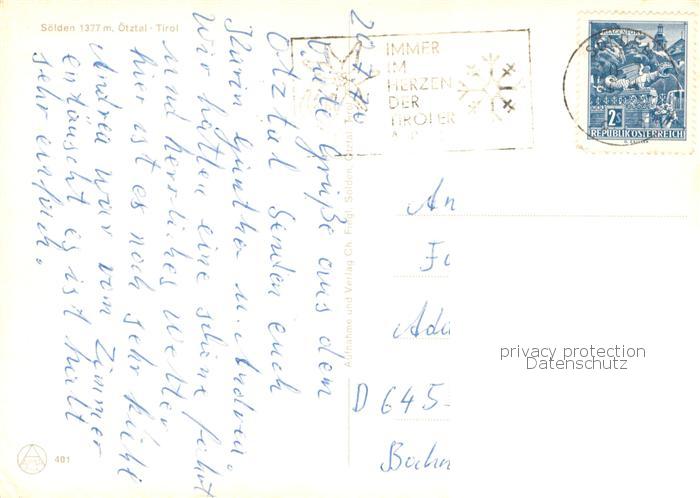 Sölden 1377 m, Ötztal · Tirol
20.7.70
Gute Grüße aus dem
Ötztal senden euch
Karin Günther u. Andrea.
Wir hatten eine schöne Fahrt
und herrliches Wetter
hier ist es noch sehr kühl
Andrea war vom Zimmer
entäuscht es ist halt
sehr einfach.
Aufnahme und Verlag Ch. Fiegl, Sölden, Ötztal, Tirol
401
IMMER
IM
HERZEN
DER
TIROLER
KLAGENFURT
2S
REPUBLIK ÖSTERREICH
An
D 645
privacy protection
Datenschutz